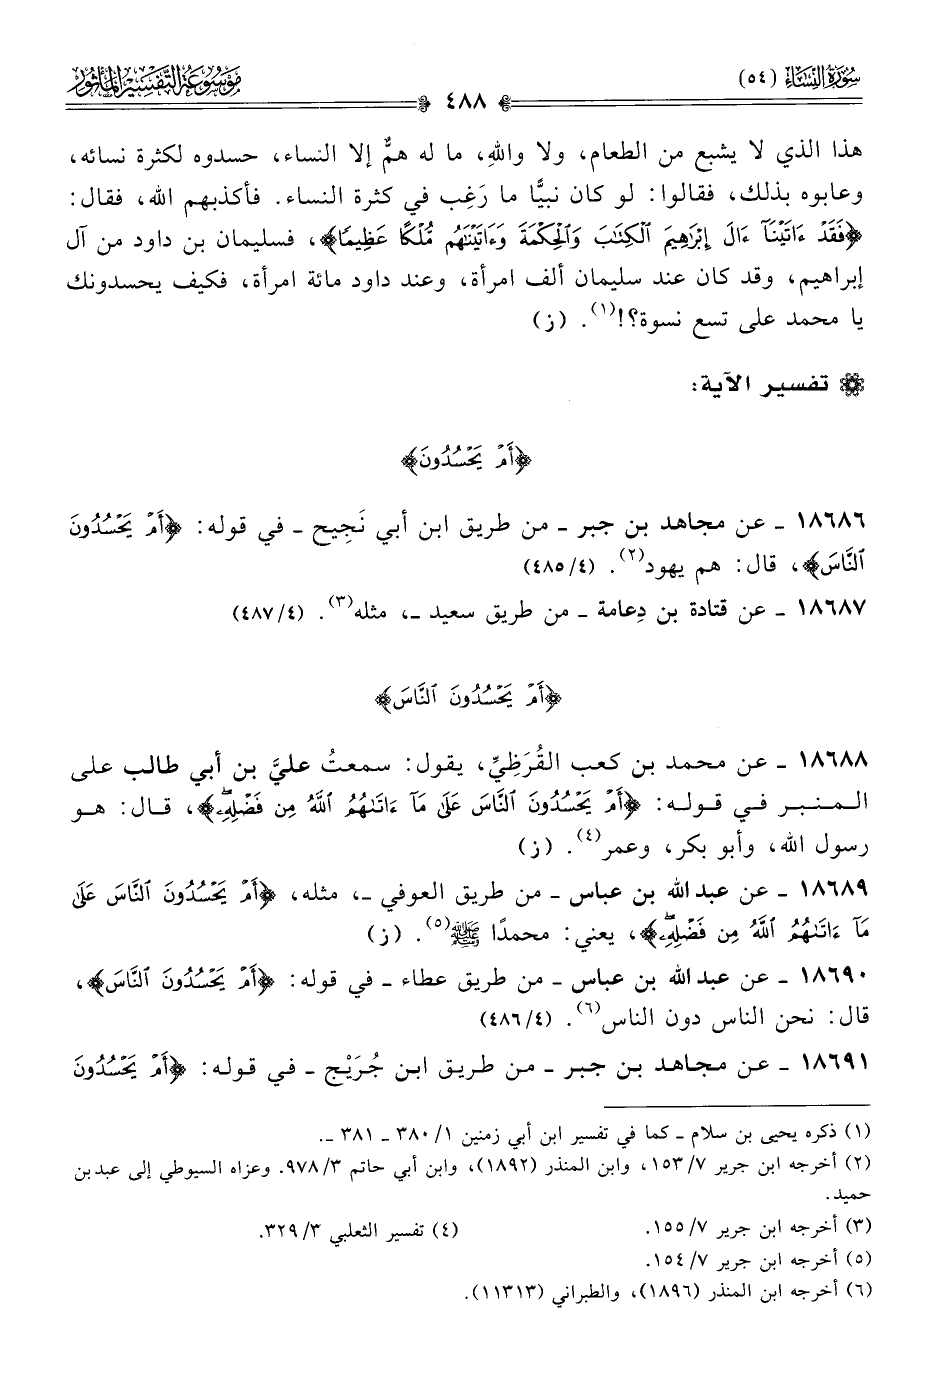 سُورَةُ النِّسَاءِ (٥٤)
مَوْسُوعَةُ التَّفْسِيرِ المَأْثُور
٤٨٨
هذا الذي لا يشبع من الطعام، ولا واللهِ، ما له همٌّ إلا النساء، حسدوه لكثرة نسائه،
وعابوه بذلك، فقالوا: لو كان نبيًّا ما رَغِب في كثرة النساء. فأكذبهم الله، فقال:
﴿فَقَدْ ءَاتَيْنَآ ءَالَ إِبْرَٰهِيمَ ٱلْكِتَٰبَ وَٱلْحِكْمَةَ وَءَاتَيْنَٰهُم مُّلْكًا عَظِيمًا﴾، فسليمان بن داود من آل
إبراهيم، وقد كان عند سليمان ألف امرأة، وعند داود مائة امرأة، فكيف يحسدونك
يا محمد على تسع نسوة؟!(١). (ز)
تفسير الآية:
﴿أَمْ يَحْسُدُونَ﴾
١٨٦٨٦ ـ عن مجاهد بن جبر ـ من طريق ابن أبي نَجِيح ـ في قوله: ﴿أَمْ يَحْسُدُونَ
ٱلنَّاسَ﴾، قال: هم يهود(٢). (٤/ ٤٨٥)
١٨٦٨٧ ـ عن قتادة بن دِعامة ـ من طريق سعيد ـ، مثله(٣). (٤/ ٤٨٧)
﴿أَمْ يَحْسُدُونَ ٱلنَّاسَ﴾
١٨٦٨٨ ـ عن محمد بن كعب القُرَظِيِّ، يقول: سمعتُ عليَّ بن أبي طالب على
المنبر في قوله: ﴿أَمْ يَحْسُدُونَ ٱلنَّاسَ عَلَىٰ مَآ ءَاتَىٰهُمُ ٱللَّهُ مِن فَضْلِهِۦۖ﴾، قال: هو
رسول الله، وأبو بكر، وعمر(٤). (ز)
١٨٦٨٩ ـ عن عبد الله بن عباس ـ من طريق العوفي ـ، مثله، ﴿أَمْ يَحْسُدُونَ ٱلنَّاسَ عَلَىٰ
مَآ ءَاتَىٰهُمُ ٱللَّهُ مِن فَضْلِهِۦۖ﴾، يعني: محمدًا ﷺ(٥). (ز)
١٨٦٩٠ ـ عن عبد الله بن عباس ـ من طريق عطاء ـ في قوله: ﴿أَمْ يَحْسُدُونَ ٱلنَّاسَ﴾،
قال: نحن الناس دون الناس(٦). (٤/ ٤٨٦)
١٨٦٩١ ـ عن مجاهد بن جبر ـ من طريق ابن جُرَيْج ـ في قوله: ﴿أَمْ يَحْسُدُونَ
(١) ذكره يحيى بن سلام ـ كما في تفسير ابن أبي زمنين ١/ ٣٨٠ ـ ٣٨١ ـ.
(٢) أخرجه ابن جرير ٧/ ١٥٣، وابن المنذر (١٨٩٢)، وابن أبي حاتم ٣/ ٩٧٨. وعزاه السيوطي إلى عبد بن
حميد.
(٣) أخرجه ابن جرير ٧/ ١٥٥.
(٤) تفسير الثعلبي ٣/ ٣٢٩.
(٥) أخرجه ابن جرير ٧/ ١٥٤.
(٦) أخرجه ابن المنذر (١٨٩٦)، والطبراني (١١٣١٣).